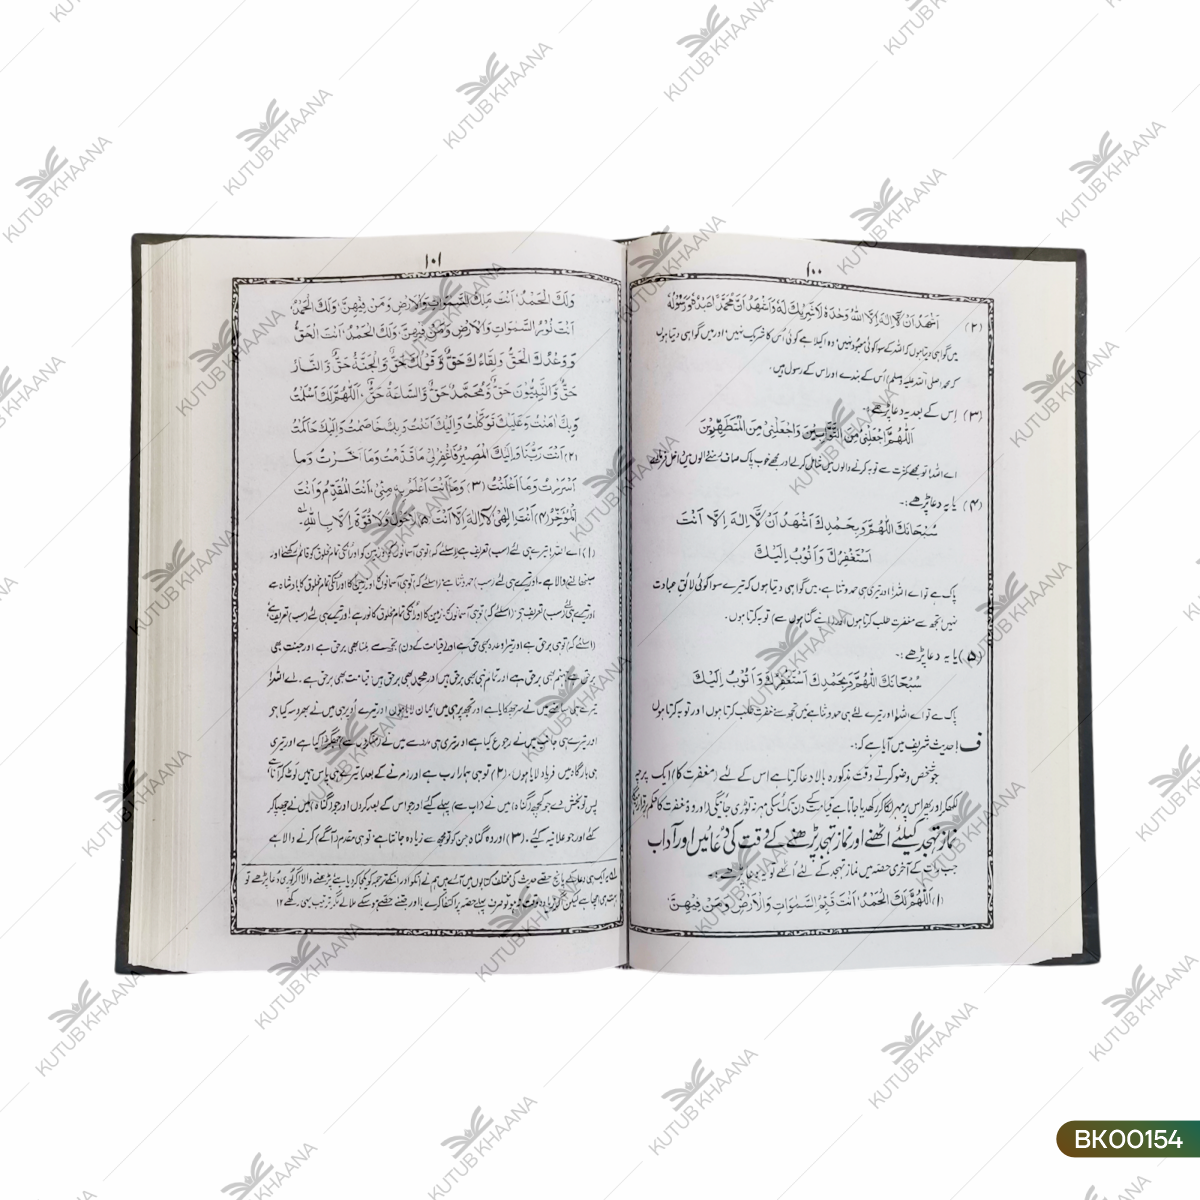 ۱۰۰
(۲) اَشْهَدُ اَنْ لَّا اِلٰهَ اِلَّا اللهُ وَحْدَهٗ لَا شَرِيْكَ لَهٗ وَاَشْهَدُ اَنَّ مُحَمَّدًا عَبْدُهٗ وَرَسُوْلُهٗ
میں گواہی دیتا ہوں کہ اللہ کے سوا کوئی معبود نہیں، وہ اکیلا ہے کوئی اُس کا شریک نہیں، اور میں گواہی دیتا ہوں
کہ محمد (صلی اللہ علیہ وسلم) اُس کے بندے اور اس کے رسول ہیں،
(۳) اِس کے بعد یہ دعا پڑھے:۔
اَللّٰهُمَّ اجْعَلْنِيْ مِنَ التَّوَّابِيْنَ وَاجْعَلْنِيْ مِنَ الْمُتَطَهِّرِيْنَ
اے اللہ! تو مجھے کثرت سے توبہ کرنے والوں میں شامل کر لے اور مجھے خوب پاک صاف رہنے والوں میں داخل فرما
(۴) یا یہ دعا پڑھے:۔
سُبْحَانَكَ اللّٰهُمَّ وَبِحَمْدِكَ اَشْهَدُ اَنْ لَّا اِلٰهَ اِلَّا اَنْتَ
اَسْتَغْفِرُكَ وَاَتُوْبُ اِلَيْكَ
پاک ہے تو اے اللہ! اور تیری ہی حمد و ثنا ہے، میں گواہی دیتا ہوں کہ تیرے سوا کوئی لائقِ عبادت
نہیں تجھ سے مغفرت طلب کرتا ہوں اور (اپنے گناہوں سے) توبہ کرتا ہوں۔
(۵) یا یہ دعا پڑھے:۔
سُبْحَانَكَ اللّٰهُمَّ وَبِحَمْدِكَ اَسْتَغْفِرُكَ وَاَتُوْبُ اِلَيْكَ
پاک ہے تو اے اللہ! اور تیرے لئے ہی حمد و ثنا ہے میں تجھ سے مغفرت طلب کرتا ہوں اور توبہ کرتا ہوں
ف احدیث شریف میں آیا ہے کہ:۔
جو شخص وضو کرتے وقت مذکورہ بالا دعا کرتا ہے اس کے لئے (مغفرت کا) ایک پرچہ
لکھ کر اور پھر اس پر مہر لگا کر رکھ دیا جاتا ہے قیامت کے دن تک اسکی مہر نہ توڑی جائیگی (اور وہ مغفرت کا حکم برقرار رہیگا)
نماز تہجد کیلئے اٹھنے اور نماز تہجد پڑھنے کے وقت کی دُعائیں اور آداب
جب رات کے آخری حصہ میں نماز تہجد کے لئے اُٹھے تو یہ دعا پڑھے:۔
(۱) اَللّٰهُمَّ لَكَ الْحَمْدُ، اَنْتَ قَيِّمُ السَّمٰوَاتِ وَالْاَرْضِ وَمَنْ فِيْهِنَّ،
۱۰۱
وَلَكَ الْحَمْدُ، اَنْتَ مَلِكُ السَّمٰوَاتِ وَالْاَرْضِ وَمَنْ فِيْهِنَّ، وَلَكَ الْحَمْدُ
اَنْتَ نُوْرُ السَّمٰوَاتِ وَالْاَرْضِ وَمَنْ فِيْهِنَّ، وَلَكَ الْحَمْدُ، اَنْتَ الْحَقُّ
وَوَعْدُكَ الْحَقُّ وَلِقَاءُكَ حَقٌّ وَّقَوْلُكَ حَقٌّ وَّالْجَنَّةُ حَقٌّ وَّالنَّارُ
حَقٌّ وَّالنَّبِيُّوْنَ حَقٌّ وَّمُحَمَّدٌ حَقٌّ وَّالسَّاعَةُ حَقٌّ، اَللّٰهُمَّ لَكَ اَسْلَمْتُ
وَبِكَ اٰمَنْتُ وَعَلَيْكَ تَوَكَّلْتُ وَاِلَيْكَ اَنَبْتُ وَبِكَ خَاصَمْتُ وَاِلَيْكَ حَاكَمْتُ
(۲) اَنْتَ رَبُّنَا وَاِلَيْكَ الْمَصِيْرُ فَاغْفِرْ لِيْ مَا قَدَّمْتُ وَمَا اَخَّرْتُ وَمَا
اَسْرَرْتُ وَمَا اَعْلَنْتُ (۳) وَمَا اَنْتَ اَعْلَمُ بِهٖ مِنِّيْ، اَنْتَ الْمُقَدِّمُ وَاَنْتَ
الْمُؤَخِّرُ (۴) اَنْتَ اِلٰهِيْ لَا اِلٰهَ اِلَّا اَنْتَ وَلَا حَوْلَ وَلَا قُوَّةَ اِلَّا بِاللهِ
(۱) اے اللہ! تیرے ہی لئے (سب) تعریف ہے (اسلئے کہ) تو ہی آسمانوں کو اور زمین کو اور انکی تمام مخلوق کو قائم رکھنے اور
سنبھالنے والا ہے۔ اور تیرے ہی لئے (سب) حمد و ثنا ہے (اسلئے کہ) تو ہی آسمانوں کا اور زمین کا اور انکی تمام مخلوق کا بادشاہ ہے
اور تیرے ہی لئے (سب) تعریف ہے (اسلئے کہ) تو ہی آسمانوں کا، زمین کا اور انکی تمام مخلوق کا نور ہے اور تیرے ہی لئے (سب) تعریف ہے
(اسلئے کہ) تو ہی برحق ہے اور تیرا وعدہ بھی حق ہے اور (قیامت کے دن) تجھ سے ملنا بھی برحق ہے اور جنت بھی
برحق ہے جہنم بھی برحق ہے اور تمام نبی بھی برحق ہیں اور محمد بھی برحق ہیں، قیامت بھی برحق ہے۔ اے اللہ!
تیرے ہی سامنے میں نے سر جھکایا ہے اور تجھ پر ہی میں ایمان لایا ہوں اور تیرے اُوپر ہی میں نے بھروسہ کیا ہے
اور تیرے ہی جانب میں نے رجوع کیا ہے اور تیری ہی مدد سے میں نے (منکروں سے) جھگڑا کیا ہے اور تیری
ہی بارگاہ میں فریاد لایا ہوں، (۲) تو ہی ہمارا رب ہے اور (مرنے کے بعد) تیرے ہی پاس ہمیں لوٹ کر آنا ہے
پس تو بخش دے جو کچھ (گناہ) میں نے (اب سے) پہلے کیئے اور جو اس کے بعد کروں اور جو گناہ میں نے چھپا کر
کئے اور جو علانیہ کیئے۔ (۳) اور وہ گناہ جن کو تو مجھ سے زیادہ جانتا ہے، تو ہی مقدم (آگے) کرنے والا ہے
BK00154